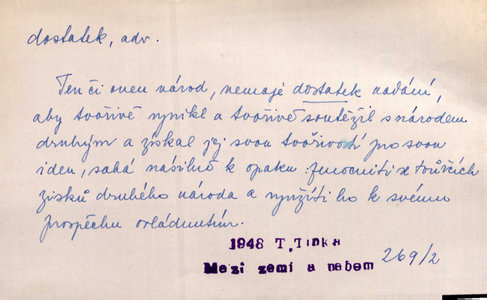 dostatek, adv.
Ten či onen národ, nemaje dostatek nadání,
aby tvořivě vynikl a tvořivě soutěžil s národem
druhým a získal jej svou tvořivostí pro svou
ideu, sahá násilně k opaku: zmocniti se tvůrčích
zisků druhého národa a využíti ho k svému
prospěchu ovládnutím.
1948 T. Tinka
Mezi zemí a nebem
269/2